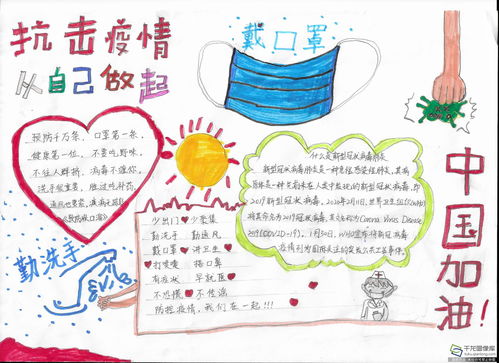 抗击疫情
从自己做起
戴口罩
预防千万条，口罩第一条，
健康第一位，不要吃野味，
不往人群挤，病毒不追你，
洗手很重要，胜过吃补药，
《预防顺口溜》
什么是新型冠状病毒肺炎
新型冠状病毒肺炎一种急性感染性肺炎，其病
原体是一种先前未在人类中发现的新型冠状病毒，即
2019新型冠状病毒。2020年2月11日，世界卫生组织(WHO)
将其命名为2019冠状病毒病，英文名称为Corona Virus Disease
2019(COVID-19)。1月30日，WHO宣布将新冠病毒
疫情列为国际关注的突发公共卫生事件。
勤洗手
少出门 少聚集
勤洗手 勤通风
戴口罩 讲卫生
打喷嚏 捂口鼻
有症状 早就医
不恐慌 不传谣
防控疫情，我们在一起!!!
中国加油!
千龙图像库